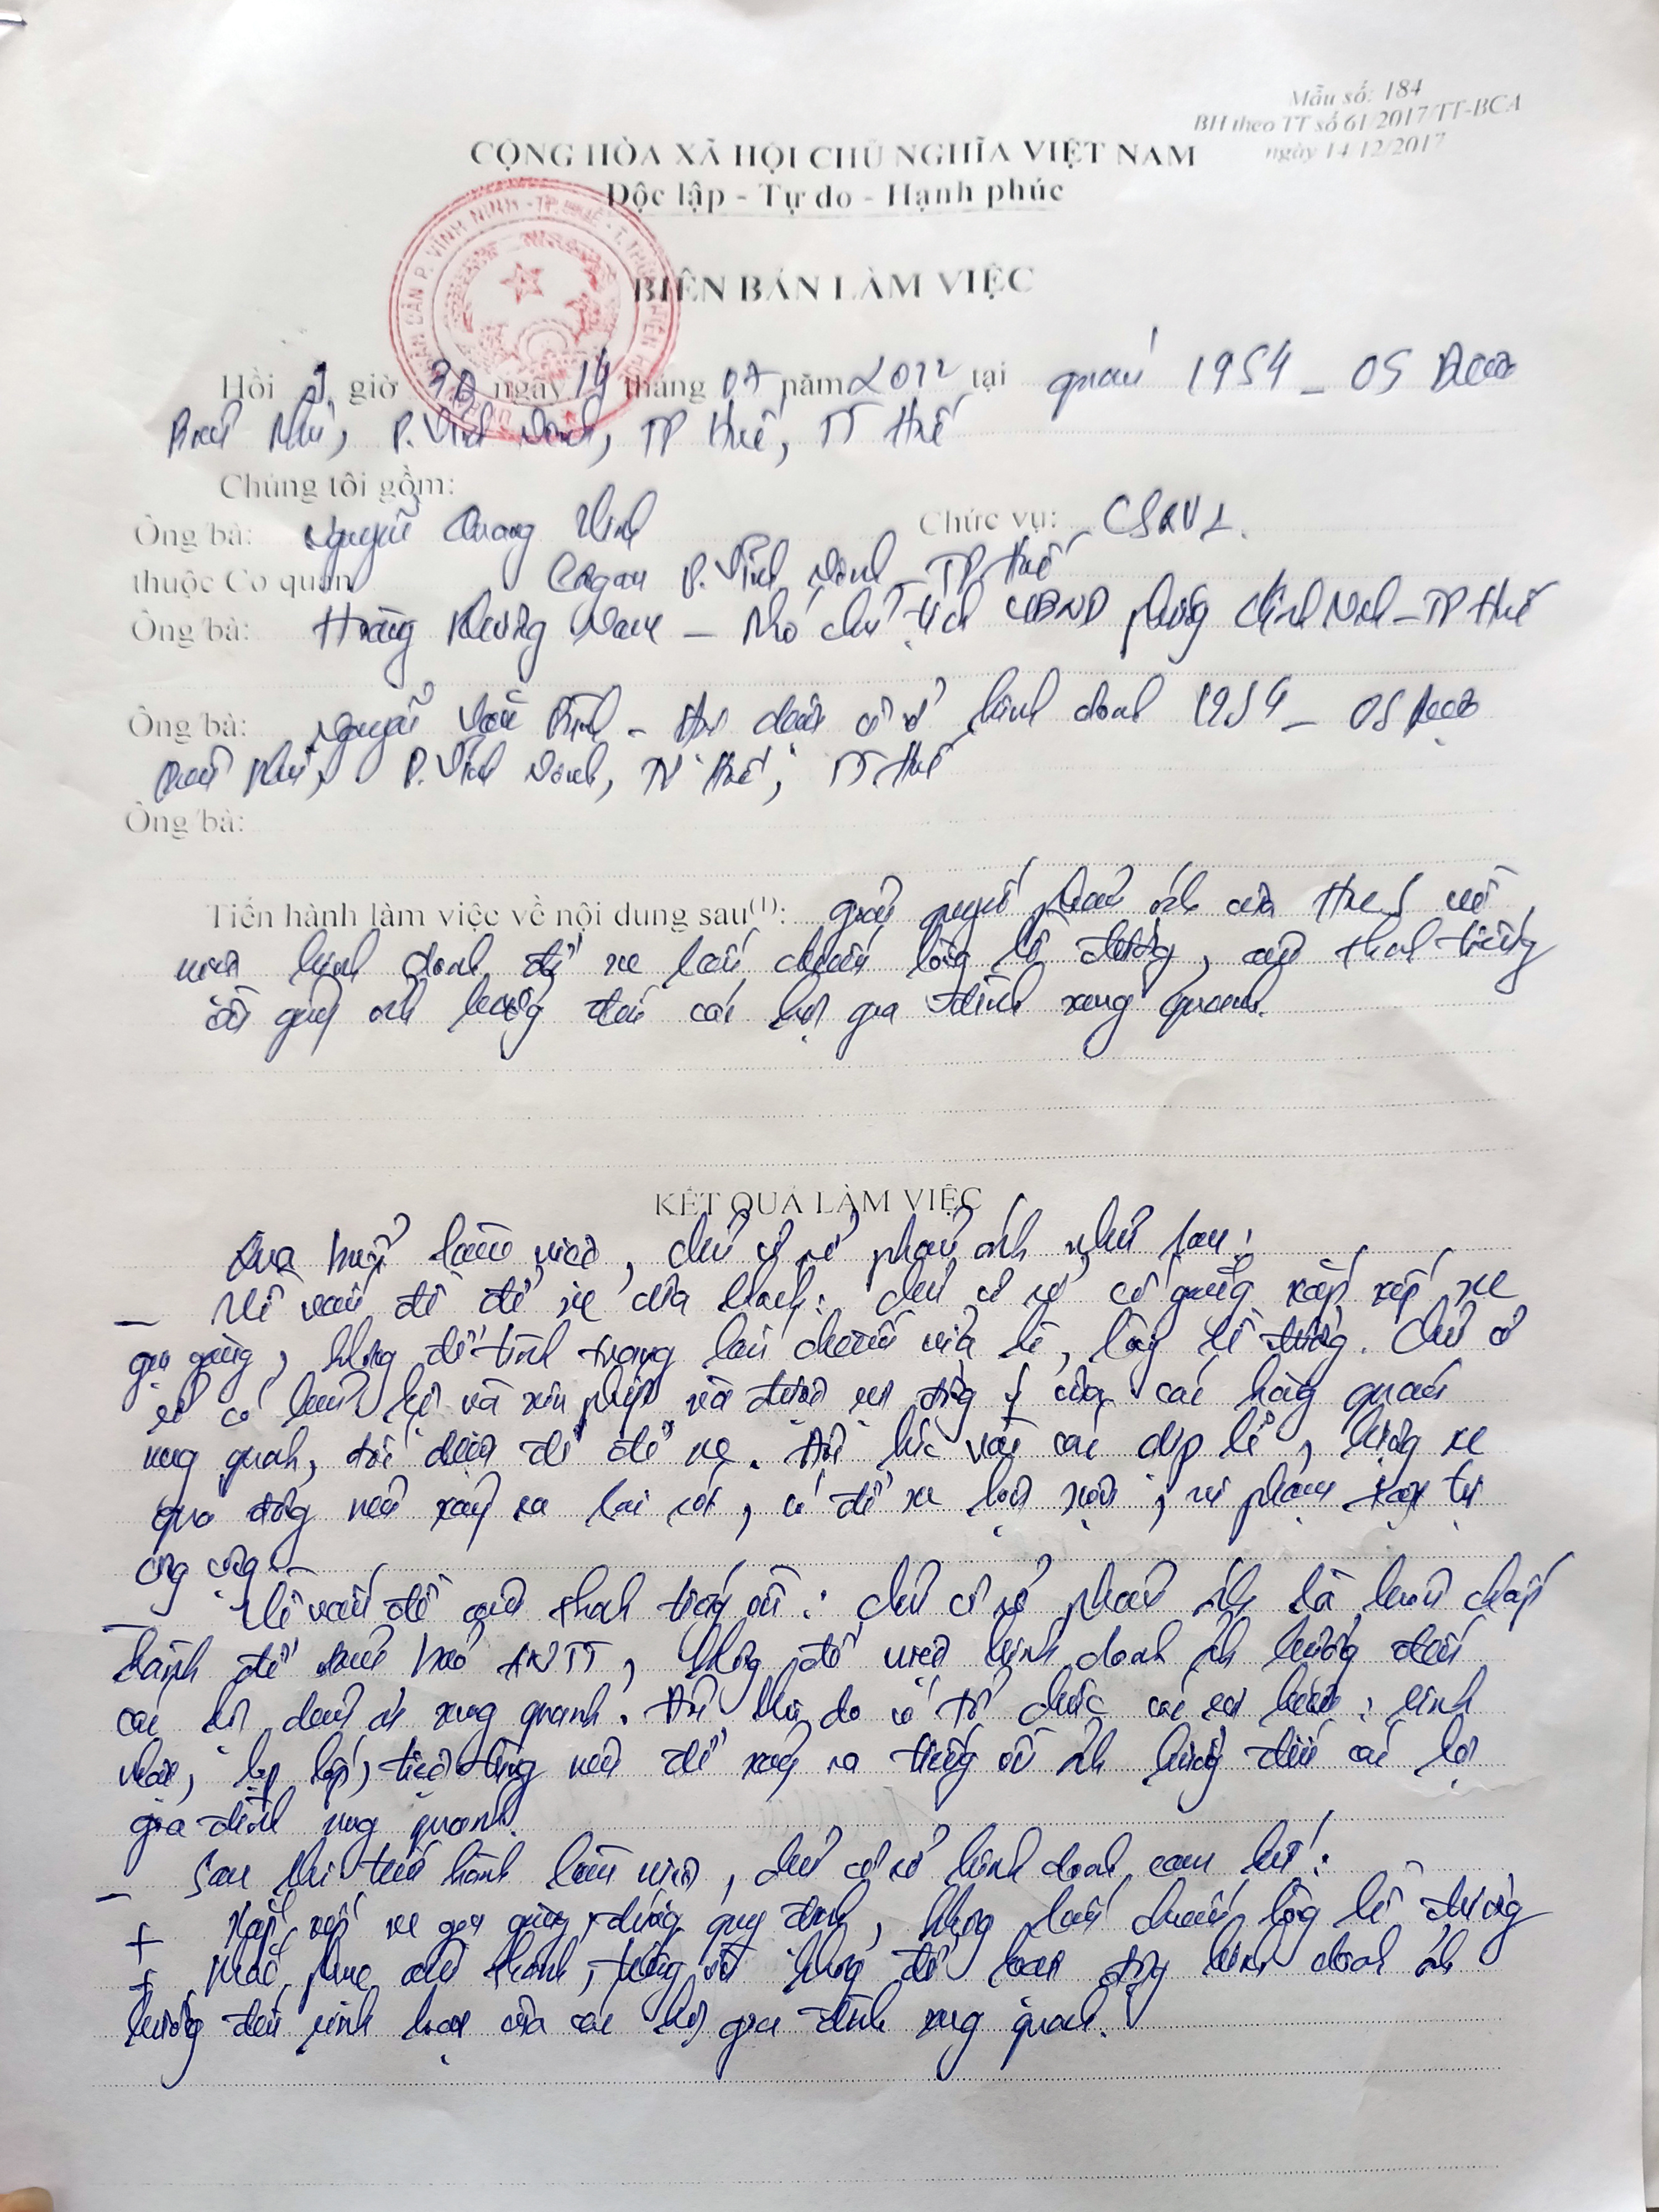 Mẫu số: 184
BH theo TT số 61/2017/TT-BCA
ngày 14/12/2017
CỘNG HÒA XÃ HỘI CHỦ NGHĨA VIỆT NAM
Độc lập - Tự do - Hạnh phúc
BIÊN BẢN LÀM VIỆC
Hồi giờ 30 ngày 14 tháng 07 năm 2022 tại quán 1954 - 05 Đoàn
Hữu P. Vĩnh Ninh, TP Huế, TT Huế
Chúng tôi gồm:
Ông/bà: Nguyễn Quang Chức vụ: CSKV
thuộc Cơ quan Công an P. Vĩnh Ninh - TP Huế
Ông/bà: Hoàng Phó chủ tịch UBND phường Vĩnh Ninh - TP Huế
Ông/bà: Nguyễn Văn - đại diện cơ sở kinh doanh 1954 - 05 Đoàn
Hữu P. Vĩnh Ninh, TP Huế, TT Huế
Ông/bà:
Tiến hành làm việc về nội dung sau(1): giải quyết phản ánh của Hue S về
việc kinh doanh để xe lấn chiếm lòng lề đường, âm thanh tiếng
ồn gây ảnh hưởng đến các hộ gia đình xung quanh.
KẾT QUẢ LÀM VIỆC
Qua buổi làm việc, chủ cơ sở phản ánh như sau:
- Về vấn đề để xe của khách: chủ cơ sở cố gắng sắp xếp xe
gọn gàng, không để tình trạng lấn chiếm vỉa hè, lòng lề đường. Chủ cơ
sở có liên hệ và xin phép và được sự đồng ý của các hàng quán
xung quanh, để để xe. Đôi lúc vào các dịp lễ, lượng xe
quá đông nên xảy ra sai sót, có để xe lộn xộn, vi phạm trật tự
công cộng.
- Về vấn đề âm thanh tiếng ồn: chủ cơ sở phản ánh là luôn chấp
hành để đảm bảo ANTT, không để việc kinh doanh ảnh hưởng đến
các hộ dân ở xung quanh. Đôi khi do có tổ chức các sự kiện: sinh
nhật, họp lớp, tiệc tùng nên để xảy ra tiếng ồn ảnh hưởng đến các hộ
gia đình xung quanh.
- Sau khi tiến hành làm việc, chủ cơ sở kinh doanh cam kết:
+ Sắp xếp xe gọn gàng, đúng quy định, không lấn chiếm lòng lề đường
+ Khắc phục âm thanh, tiếng ồn không để hoạt động kinh doanh ảnh
hưởng đến sinh hoạt của các hộ gia đình xung quanh.